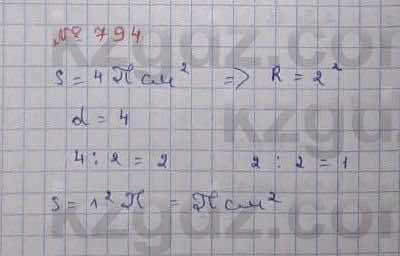 № 794
S = 4П см² => R = 2²
d = 4
4 : 2 = 2 2 : 2 = 1
S = 1²П = П см²
kzgdz.com